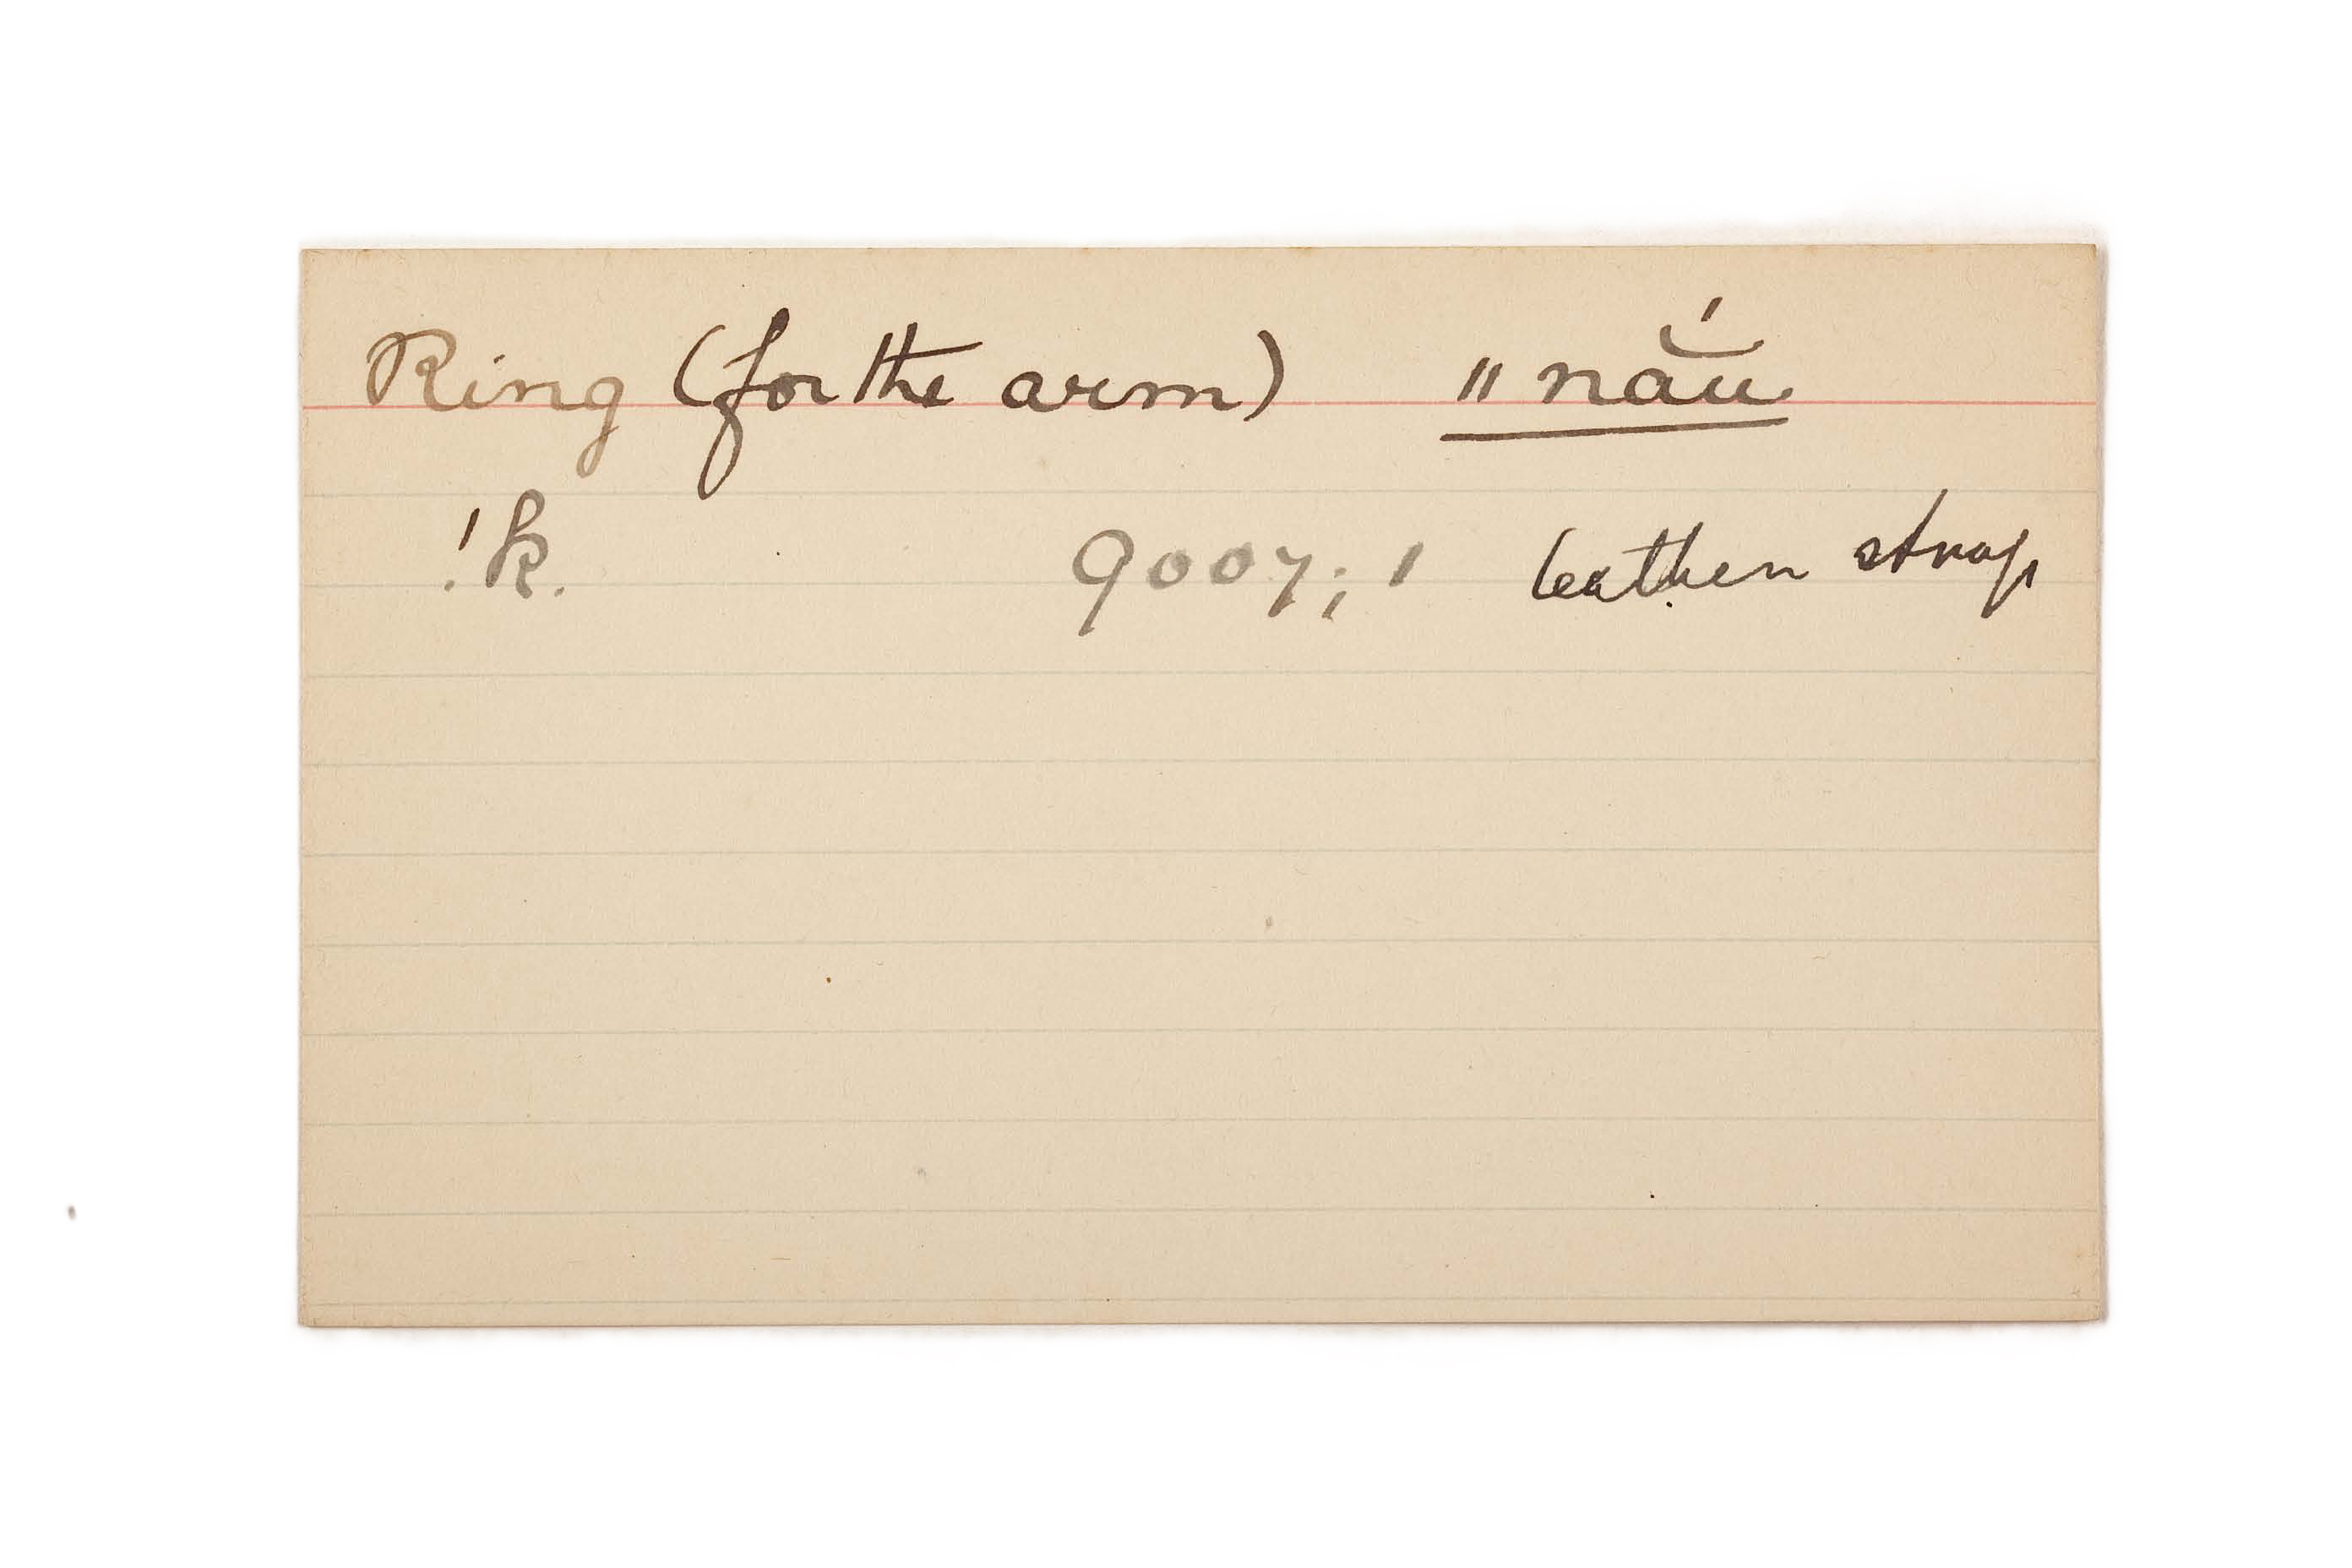 Ring (for the arm) ǁnắu
!k. 9007; 1 leather strap